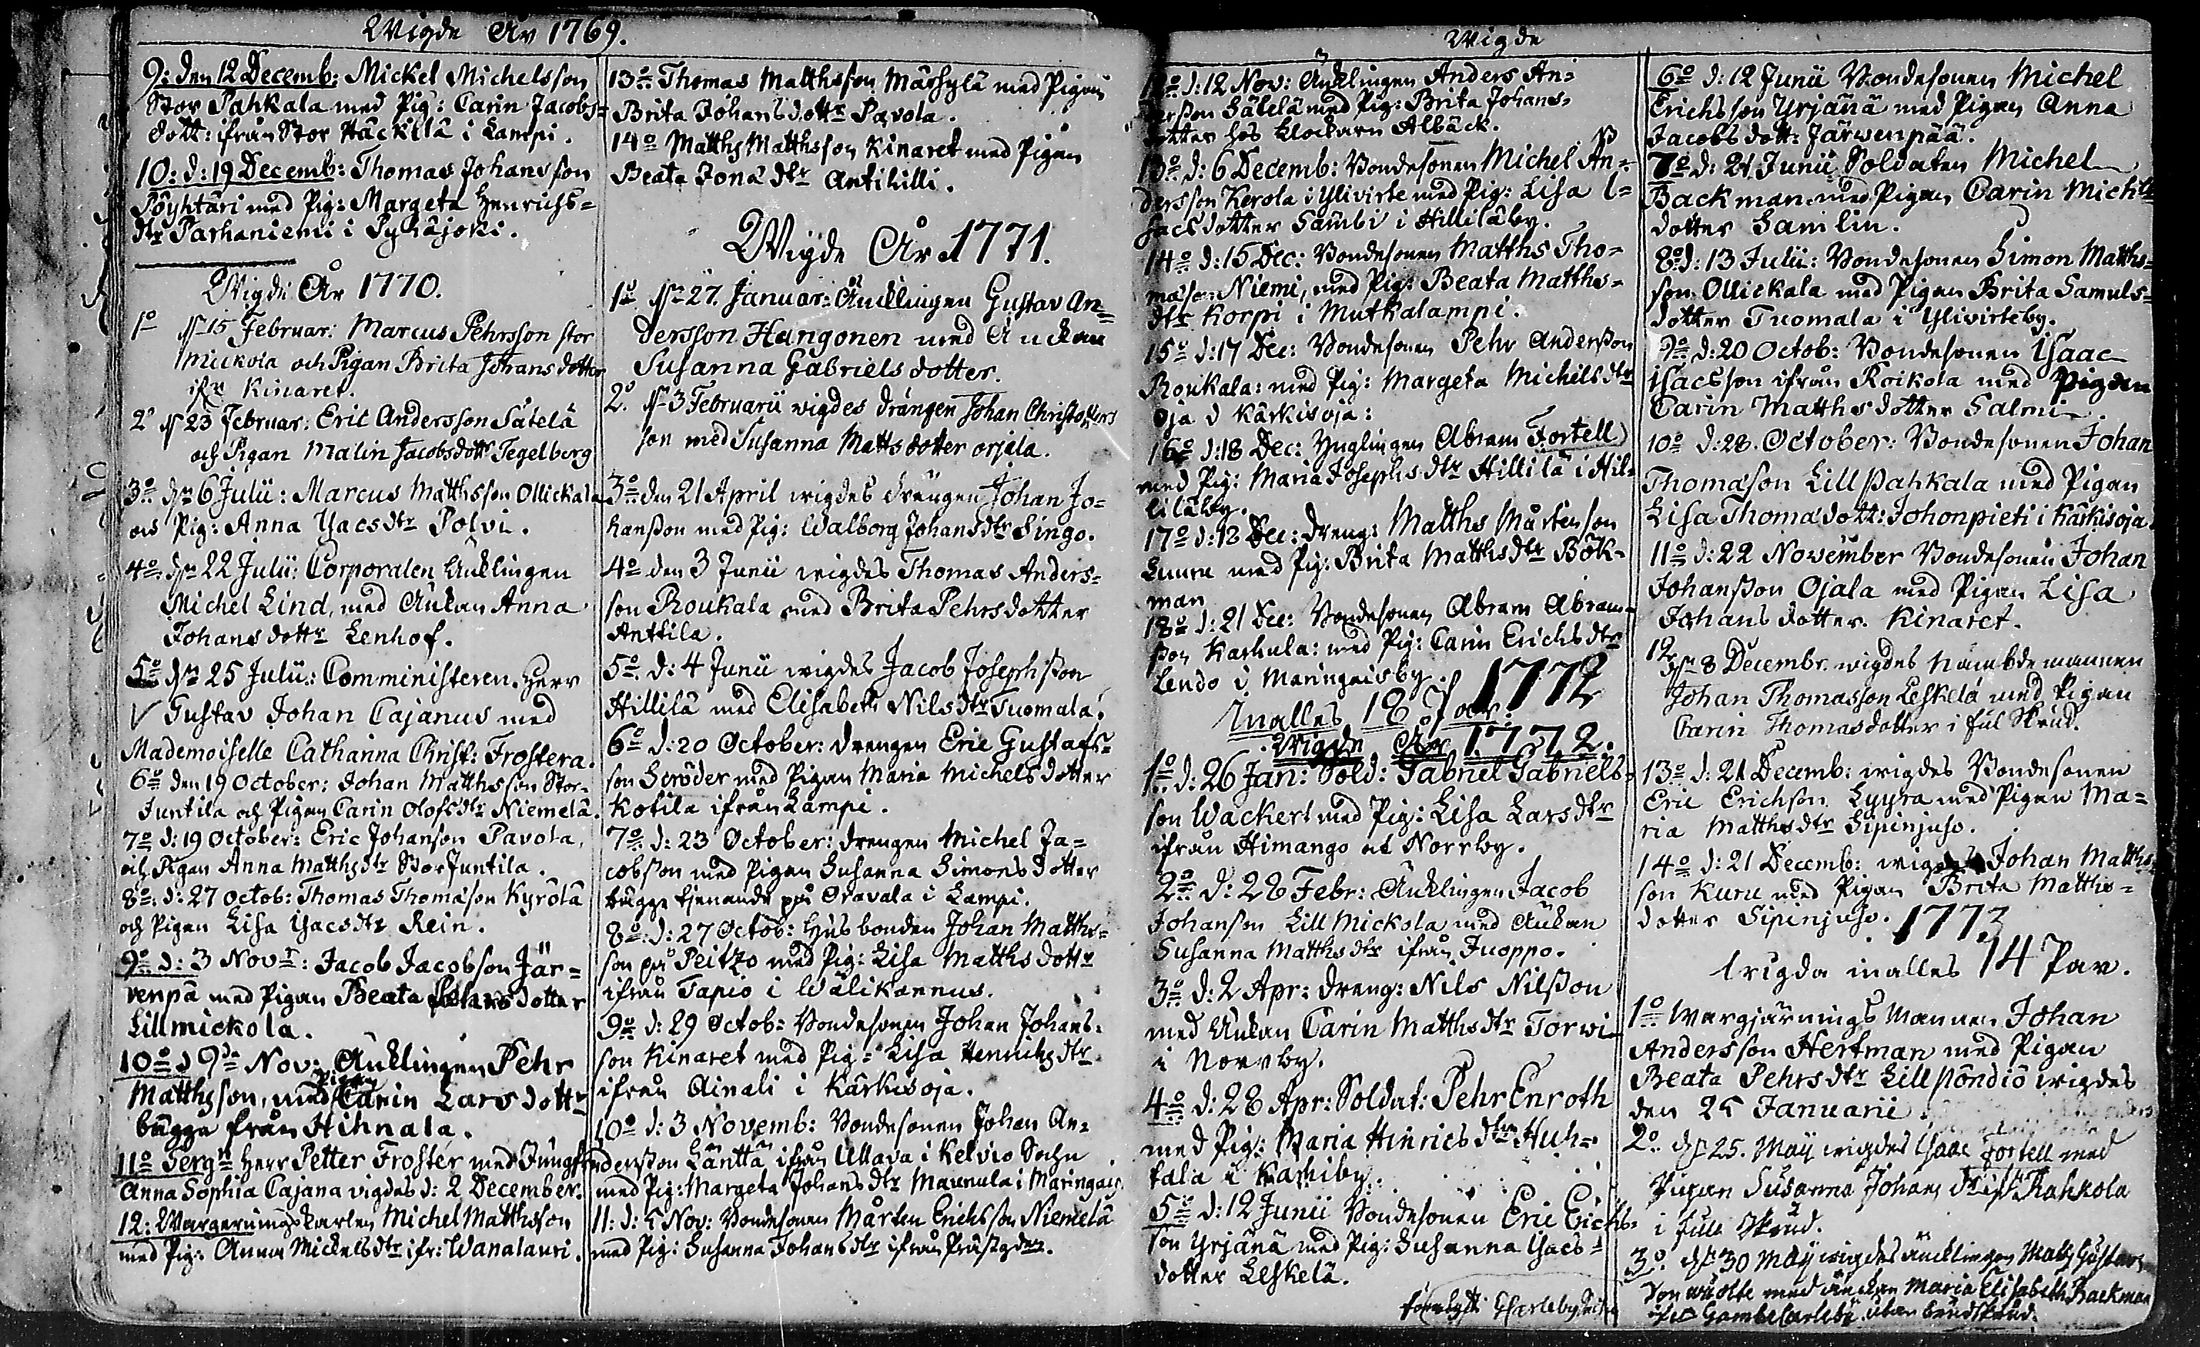 Wigde År 1769.
9: den 12 Decemb: Mickel Michelsson
Stor Pahkala med Pig: Carin Jacobs=
dott: ifrån Stor Häckilä i Lampi.
10: d: 19 Decemb: Thomas Johansson
Pöyhtäri med Pig: Margeta Henrichs=
dtr Parhaniemi i Pyhäjoki.
Wigde År 1770.
1o 15 Februar: Marcus Pehrsson stor
Mickola och Pigan Brita Johans dotter
ifr Kinaret.
2o 23 Februar: Eric Andersson Säkelä
och Pigan Malin Jacobsdottr Tegelberg
3o den 6 Julii: Marcus Matthsson Ollickala
och Pig: Anna Isacsdtr Polvi.
4o den 22 Julii: Corporalen Änklingen
Michel Lind, med Änkan Anna
Johansdottr Lenhof.
5o den 25 Julii: Comministeren Herr
Gustav Johan Cajanus med
Mademoiselle Catharina Christ: Frostera.
6o den 19 October: Johan Matthsson Stor-
Juntila och Pigan Carin Olofsdtr Niemelä.
7o d: 19 October: Eric Johanson Pavola,
och Pigan Anna Matthsdtr Stor Juntila.
8o d: 27 Octob: Thomas Thomasson Kyrölä
och Pigan Lisa Isacsdtr Rein.
9o d: 3 Novr: Jacob Jacobson Jär=
venpä med Pigan Beata dotter
Lillmickola.
10o d 9de Nov: Änklingen Pehr
Matthsson, med Pigan Carin Lars dottr
bägge från Hihnala.
11o Serg: Herr Petter Froster med Jungfr
Anna Sophia Cajana vigdes d: 2 December.
12: Wargeringskarlen Michel Matthsson
med Pig: Anna Mickelsdtr ifr: Wanalauri.
13o Thomas Matthsson Märsylä med Pigan
Brita Johansdottr Pavola.
14o Matths Matthsson Kinaret med Pigan
Beata Jonae dtr Antihilli.
Wigde År 1771.
1o 27 Januar: Änklingen Gustav An=
dersson Hangonen med Änckan
Susanna Gabriels dotter.
2o 3 Februarii vigdes drängen Johan Christophers
son med Susanna Matts dotter orjala.
3o den 21 April wigdes drängen Johan Jo=
hansson med Pig: Walborg Johansdtr Singo.
4o den 3 Junii wigdes Thomas Anders=
son Roukala med Brita Pehrsdotter
Anttila.
5o d: 4 Junii wigdes Jacob Josephsson
Hillilä med Elisabeth Nilsdtr Tuomala.
6o d: 20 October: drengen Eric Gustafs=
son Scröder med Pigan Maria Michelsdotter
Kotila ifrån Lampi.
7o d: 23 October: drengen Michel Ja=
cobsson med Pigan Susanna Simons dotter
bägge tjenande på Oravala i Lampi.
8o d: 27 Octob: Husbonden Johan Matths=
son på Peitzo med Pig: Lisa Matths dottr
ifrån Tapio i Wälikannus.
9o d: 29 Octob: Bondesonen Johan Johans=
son Kinaret med Pig: Lisa Henrichsdtr
ifrån Ainali i Kärkisoja.
10o d: 3 Novemb: Bondesonen Johan An=
dersson Länttä ifrån Ullava i Kelvio Sochn
med Pig: Margeta Johansdtr Maunula i Maringais.
11: d: 5 Nov: Bondesonen Mårten Erichsson Niemelä
med Pig: Susanna Johansdtr ifrån Prästgden.
Wigde
12o d: 12 Nov: Änklingen Anders An=
dersson Säkelä med Pig: Brita Johans=
dotter hos Klockaren Albäck.
13o d: 6 Decemb: Bondesonen Michel An=
dersson Kerola i Ylivirte med Pig: Lisa I=
sacsdotter Sämbi i Hilliläby.
14o d: 15 Dec: Bondesonen Matths Tho=
masson Niemi, med Pig: Beata Matths=
dtr Korpi i Mutkalampi.
15o d: 17 Dec: Bondesonen Pehr Andersson
Roukala: med Pig: Margeta Michelsdtr
Oja i Kärkisoja:
16o d: 18 Dec: Ynglingen Abram Fortell
med Pig: Maria Josephsdtr Hillilä i Hil=
liläby.
17o d: 18 Dec: dreng: Matths Mårtenson
Luuru med Pig: Brita Matthsdtr Böck=
man
18o d: 21 Dec: Bondesonen Abram Abram=
son Karhula: med Pig: Carin Erichsdtr
Lendo i Maringaisby.
Inalles 18 Par. 1772
Wigde År 1772.
1o d: 26 Jan: Sold: Gabriel Gabriels=
son Wackert med Pig: Lisa Larsdtr
ifrån Himango at Norrby.
2o d: 28 Febr: Änklingen Jacob
Johansson Lill Mickola med Änkan
Susanna Matthsdtr ifrån Juoppo.
3o d: 2 Apr: dreng: Nils Nilsson
med Änkan Carin Matthsdtr Torwi
i Norrby.
4o d: 28 Apr: Soldat: Pehr Enroth
med Pig: Maria Hinricsdtr Huh=
tala i Karhiby.
5o d: 12 Junii Bondesonen Eric Erichs=
son Yrjänä med Pig: Susanna Isacs=
dotter Leskelä.
6o d: 12 Junii Bondesonen Michel
Erichsson Yrjänä med Pigan Anna
Jacobs dott: Järwenpää.
7o d: 21 Junii Soldaten Michel
Backman med Pigan Carin Michels
dotter Samlin.
8o d: 13 Julii: Bondesonen Simon Matths=
son Ollickala med Pigan Brita Samuels=
dotter Tuomala i Ylivirteby.
9o d: 20 Octob: Bondesonen Isaac
Isacsson ifrån Roikola med Pigan
Carin Matthsdotter Salmi.
10o d: 28 October: Bondesonen Johan
Thomasson Lill Pahkala med Pigan
Lisa Thomaedott: Johonpieti i Kärkisoja.
11o d: 22 November Bondesonen Johan
Johansson Ojala med Pigan Lisa
Johansdotter Kinaret.
12 den 8 Decembr. wigdes Nämbdemannen
Johan Thomasson Leskelä med Pigan
Carin Thomasdotter i ful Skrud.
13o d: 21 Decemb: wigdes Bondesonen
Eric Erichson Lyyra med Pigan Ma=
ria Matthsdtr Sipinjuso.
14o d: 21 Decemb: wigdes Johan Matths
son Kuru med Pigan Brita Matths=
dotter Sipinjuso. 1773
wigda inalles 14 Par.
1o Wargjärnings Mannen Johan
Andersson Hertman med Pigan
Beata Pehrsdtr Lillpöndiö wigdes
den 25 Januarii
2o d 25 Maij wigdes Isaac Fortell med
Pigan Susanna Johans dtr ifrån Rahkola
i full Skrud.
3o d 30 Maij wigdes änklingen Matts Gustavs
son med änckan Maria Elisabeth Backman
ifrå Gambelcarleby utan brudskrud.